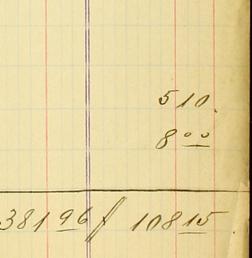 5 10
8 00
381 96 f 108 15